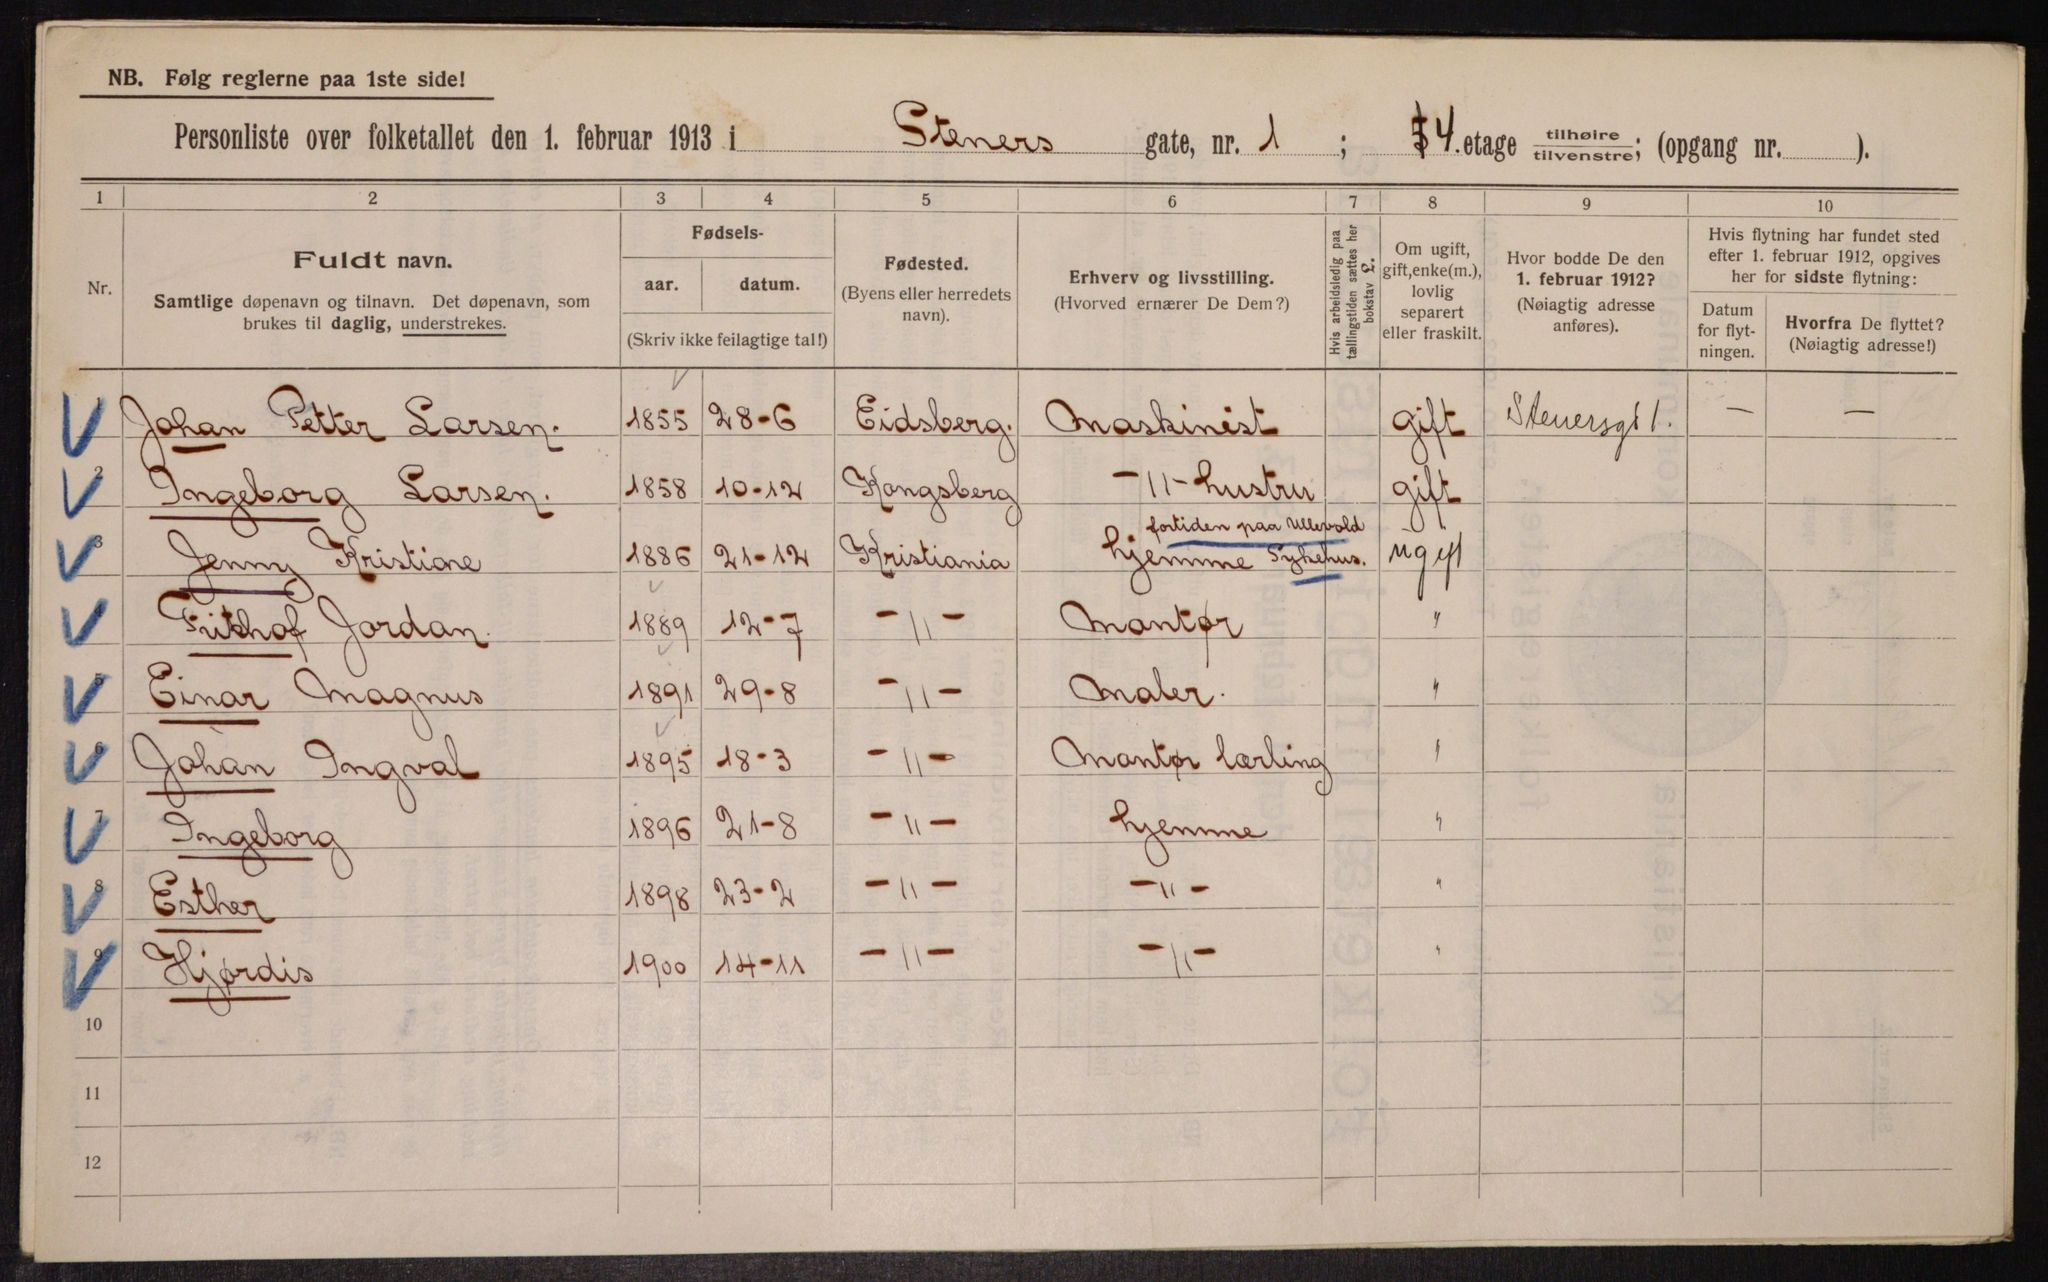 NB. Følg reglerne paa 1ste side!
Personliste over folketallet den 1. februar 1913 i Steners gate, nr. 1 ; 4. etage tilhøire/tilvenstre; (opgang nr. ).
1 2 3 4 5 6 7 8 9 10
Nr.
Fuldt navn.
Samtlige døpenavn og tilnavn. Det døpenavn, som
brukes til daglig, understrekes.
Fødsels-
aar. datum.
(Skriv ikke feilagtige tal!)
Fødested.
(Byens eller herredets
navn).
Erhverv og livsstilling.
(Hvorved ernærer De Dem?)
Hvis arbeidsledig paa
tællingstiden sættes her
bokstav L.
Om ugift,
gift, enke(m.),
lovlig
separert
eller fraskilt.
Hvor bodde De den
1. februar 1912?
(Nøiagtig adresse
anføres).
Hvis flytning har fundet sted
efter 1. februar 1912, opgives
her for sidste flytning:
Datum
for flyt-
ningen.
Hvorfra De flyttet?
(Nøiagtig adresse!)
1 Johan Petter Larsen. 1855 28-6 Eidsberg. Maskinist gift Stenersgt 1. — —
2 Ingeborg Larsen. 1858 10-12 Kongsberg -"- hustru gift
fortiden paa Ullevold
3 Jenny Kristiane 1886 21-12 Kristiania hjemme Sykehus. ugift
4 Frithof Jordan. 1889 12-7 -"- Montør "
5 Einar Magnus 1891 29-8 -"- Maler. "
6 Johan Ingval 1895 18-3 -"- Montør lærling "
7 Ingeborg 1896 21-8 -"- hjemme "
8 Esther 1898 23-2 -"- -"- "
9 Hjørdis 1900 14-11 -"- -"- "
10
11
12